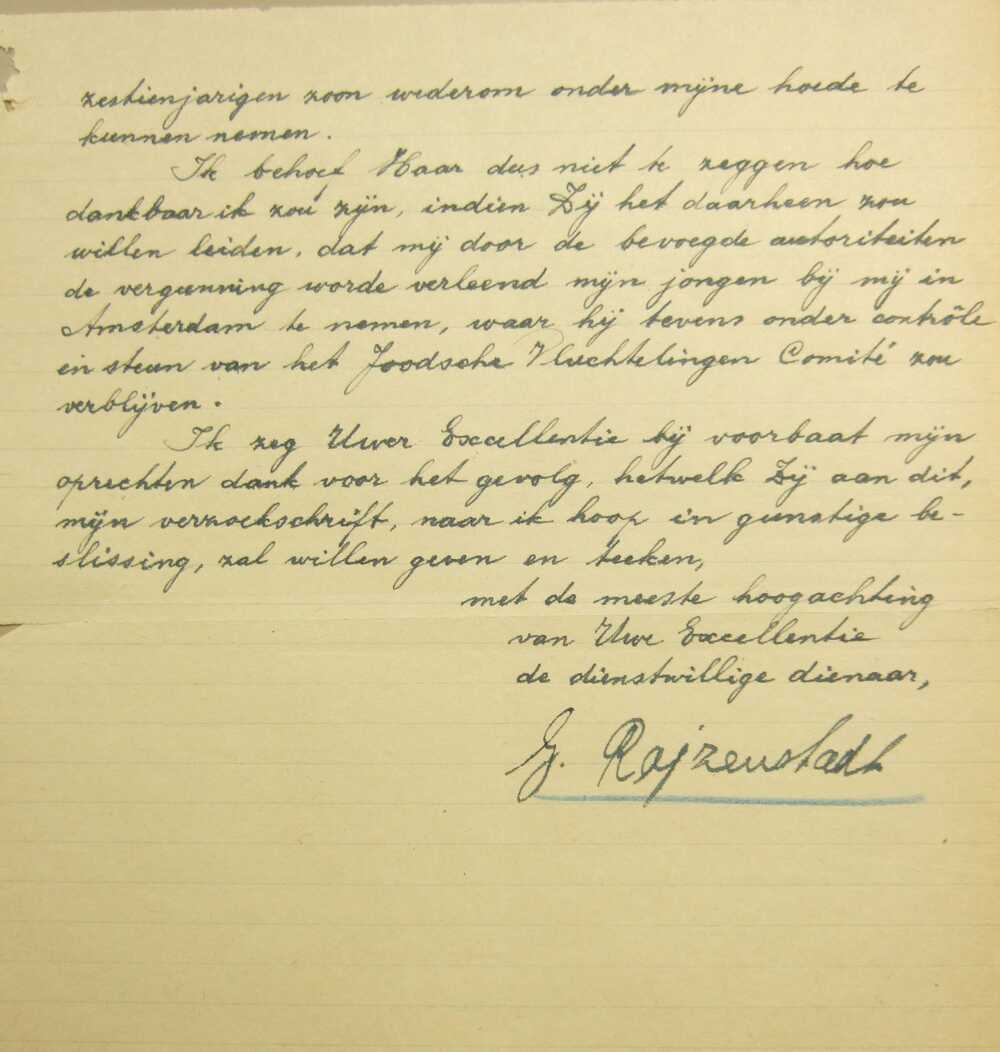 zestienjarigen zoon wederom onder mijne hoede te
kunnen nemen.
Ik behoef Haar dus niet te zeggen hoe
dankbaar ik zou zijn, indien Zij het daarheen zou
willen leiden, dat mij door de bevoegde autoriteiten
de vergunning worde verleend mijn jongen bij mij in
Amsterdam te nemen, waar hij tevens onder contrôle
en steun van het Joodsche Vluchtelingen Comité zou
verblijven.
Ik zeg Uwer Excellentie bij voorbaat mijn
oprechten dank voor het gevolg, hetwelk Zij aan dit,
mijn verzoekschrift, naar ik hoop in gunstige be-
slissing, zal willen geven en teeken,
met de meeste hoogachting
van Uwe Excellentie
de dienstwillige dienaar,
G. Rajzenstadt